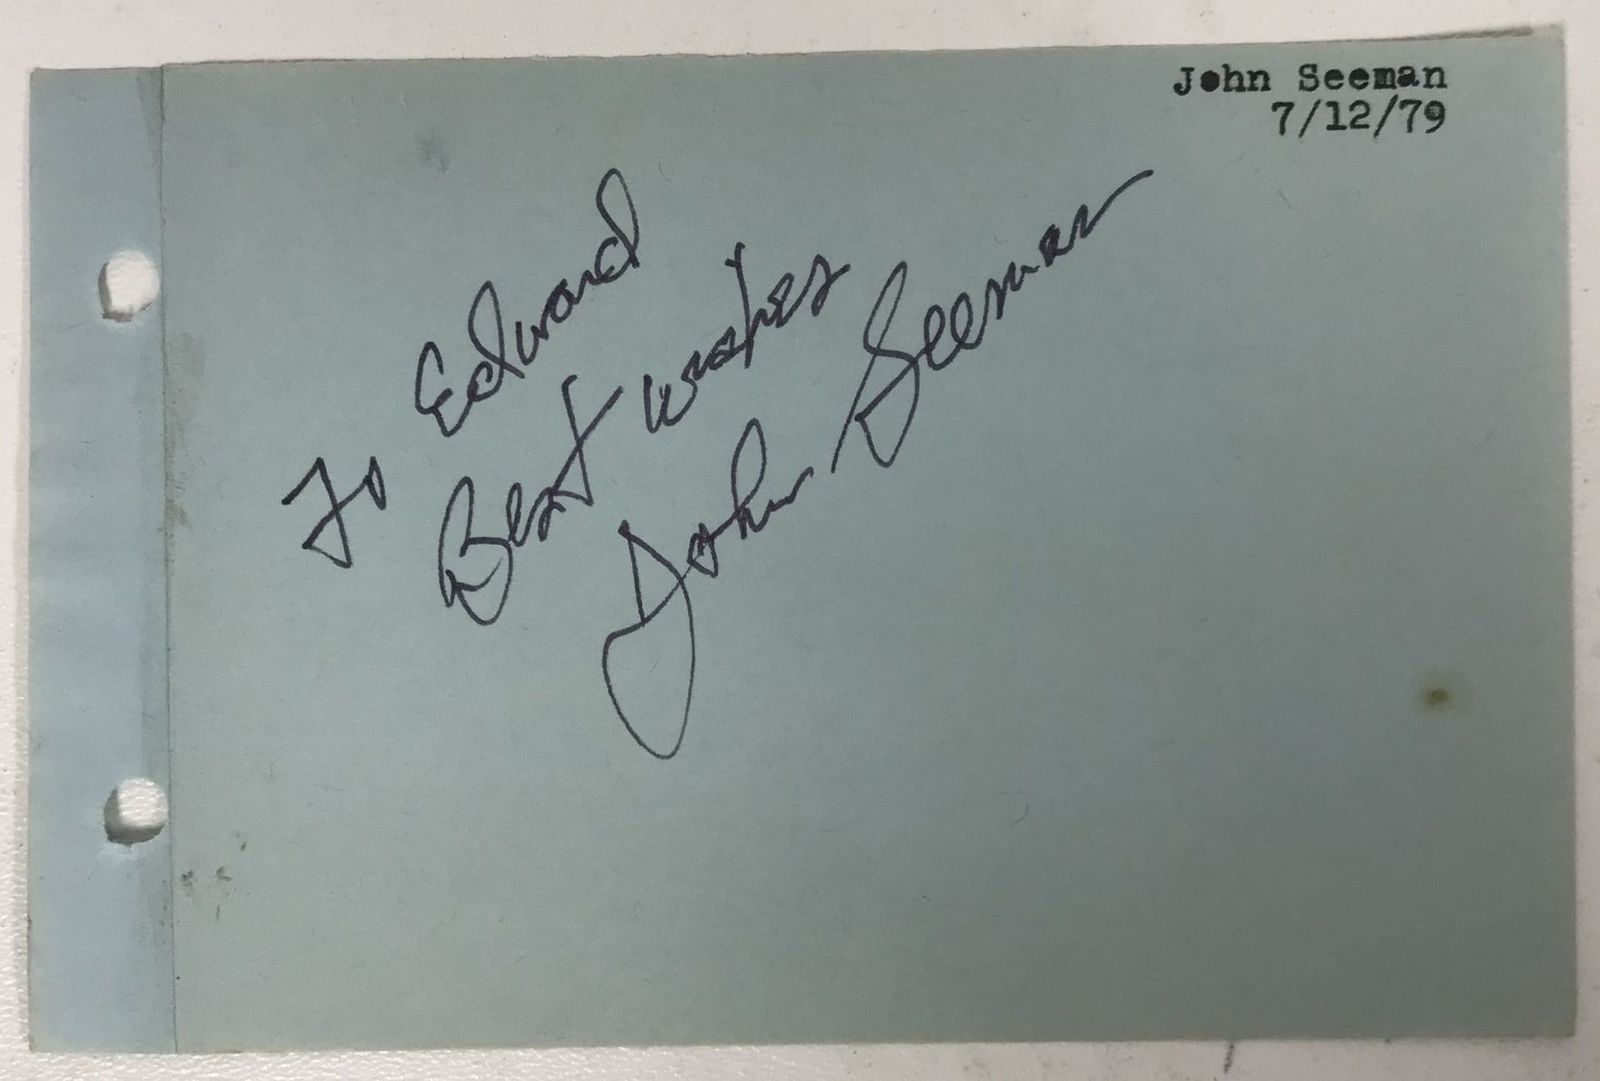 John Seeman
7/12/79
To Edward
Best wishes
John Seeman